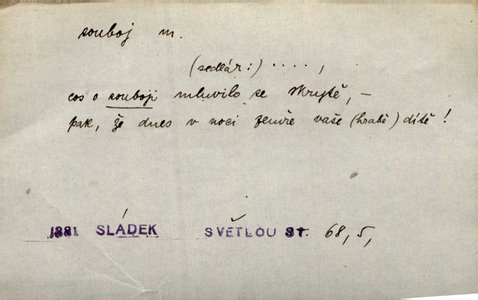 souboj m.
(sedlář:) ....,
cos o souboji mluvilo se skrytě, –
pak, že dnes v noci zemře vaše (hrabě) dítě!
1881 SLÁDEK SVĚTLOU ST. 68, 5,